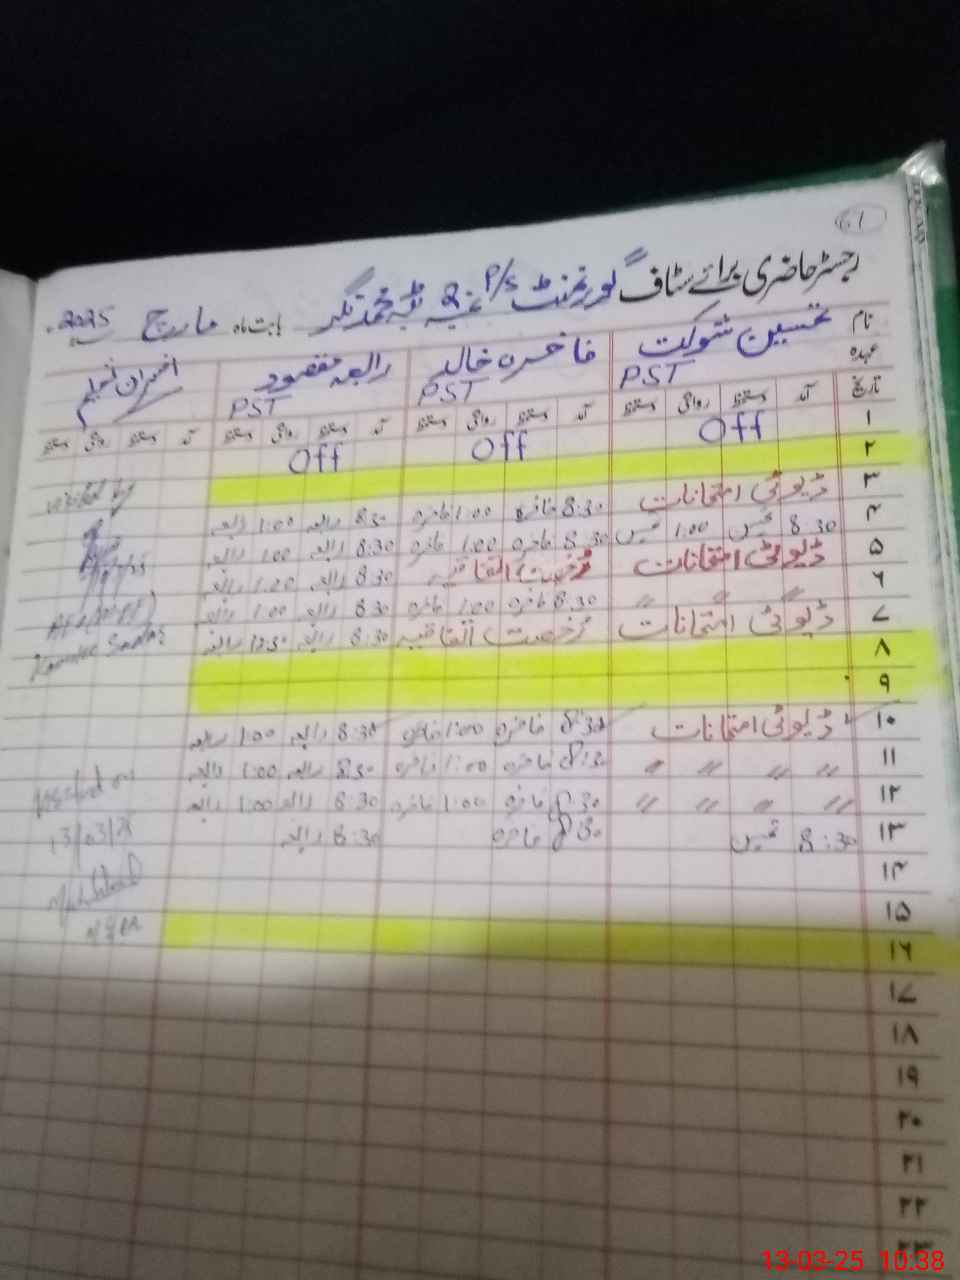 61
رجسٹر حاضری برائے سٹاف گورنمنٹ P/S بابت ماہ مارچ 2025
نام تحسین شوکت فاخرہ خالد رابعہ مقصود افسران
عہدہ PST PST PST
تاریخ آمد دستخط روانگی دستخط آمد دستخط روانگی دستخط آمد دستخط روانگی دستخط آمد دستخط روانگی دستخط
۱ Off Off Off
۲
۳ ڈیوٹی امتحانات 8:30 فاخرہ 1:00 فاخرہ 8:30 رابعہ 1:00 رابعہ visited by
۴ 8:30 1:00 8:30 فاخرہ 1:00 فاخرہ 8:30 رابعہ 1:00 رابعہ
۵ ڈیوٹی امتحانات رخصت اتفاقیہ 8:30 رابعہ رابعہ
۶ " " " 8:30 فاخرہ 1:00 فاخرہ 8:30 رابعہ 1:00 رابعہ
۷ ڈیوٹی امتحانات رخصت اتفاقیہ 8:30 رابعہ 12:30 رابعہ
۸
۹
۱۰ ڈیوٹی امتحانات 8:30 فاخرہ 1:00 فاخرہ 8:30 رابعہ 1:00 رابعہ
۱۱ " " " " 8:30 فاخرہ 1:00 فاخرہ 8:30 رابعہ 1:00 رابعہ visited on
۱۲ " " " " 8:30 فاخرہ 1:00 فاخرہ 8:30 رابعہ 1:00 رابعہ 13/03/25
۱۳ 8:30 8:30 فاخرہ 8:30 رابعہ
۱۴
۱۵
۱۶
۱۷
۱۸
۱۹
۲۰
۲۱
۲۲
۲۳
13-03-25 10:38